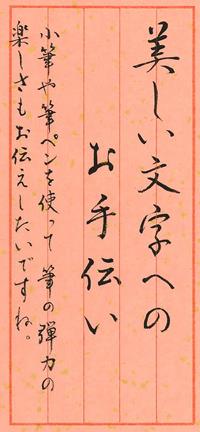 美しい文字への
お手伝い
小筆や筆ペンを使って筆の弾力の
楽しさもお伝えしたいですね。